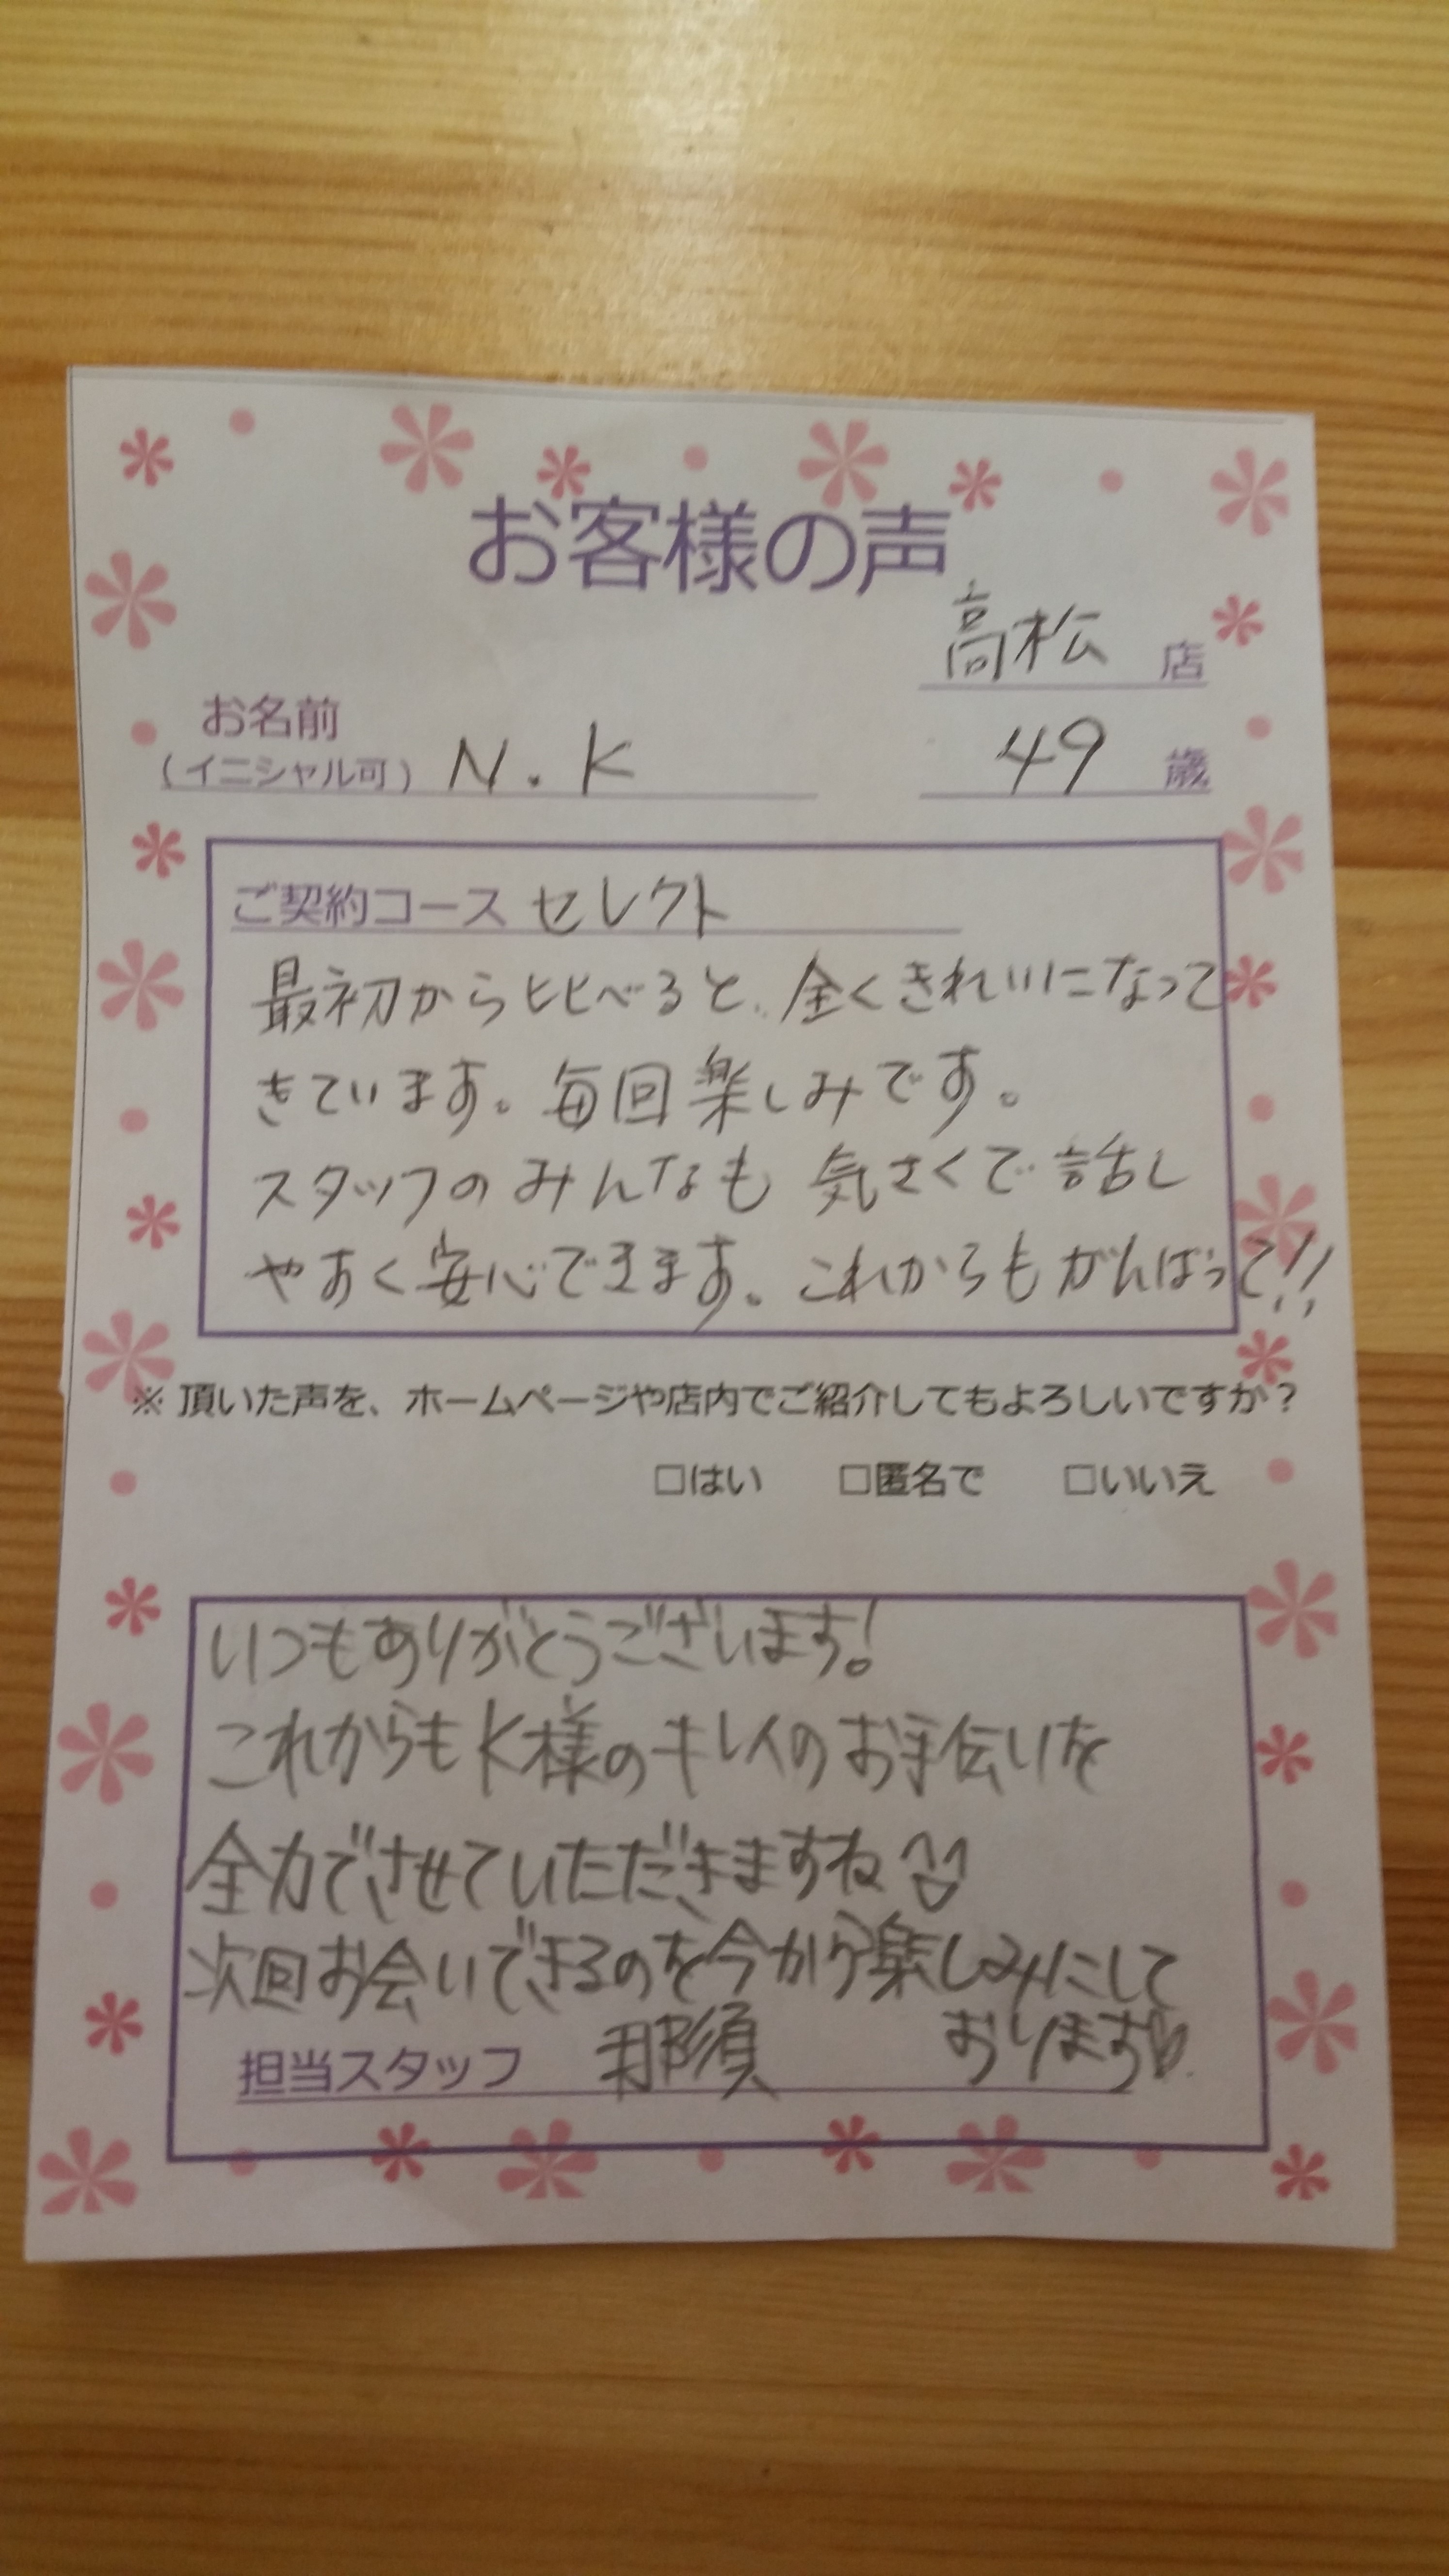 お客様の声
高松 店
お名前
(イニシャル可) N.K 49 歳
ご契約コース セレクト
最初から比べると、全くきれいになって
きています。毎回楽しみです。
スタッフのみんなも気さくで話し
やすく安心できます。これからもがんばって!!
※ 頂いた声を、ホームページや店内でご紹介してもよろしいですか?
□はい □匿名で □いいえ
いつもありがとうございます!
これからもK様のキレイのお手伝いを
全力でさせていただきますね
次回お会いできるのを今から楽しみにして
おります♡
担当スタッフ 那須